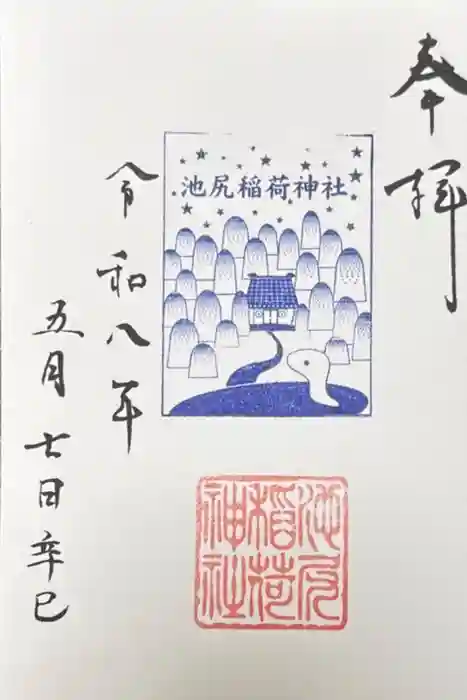 奉拝
池尻稲荷神社
池尻稲荷神社
令和八年
五月七日辛巳